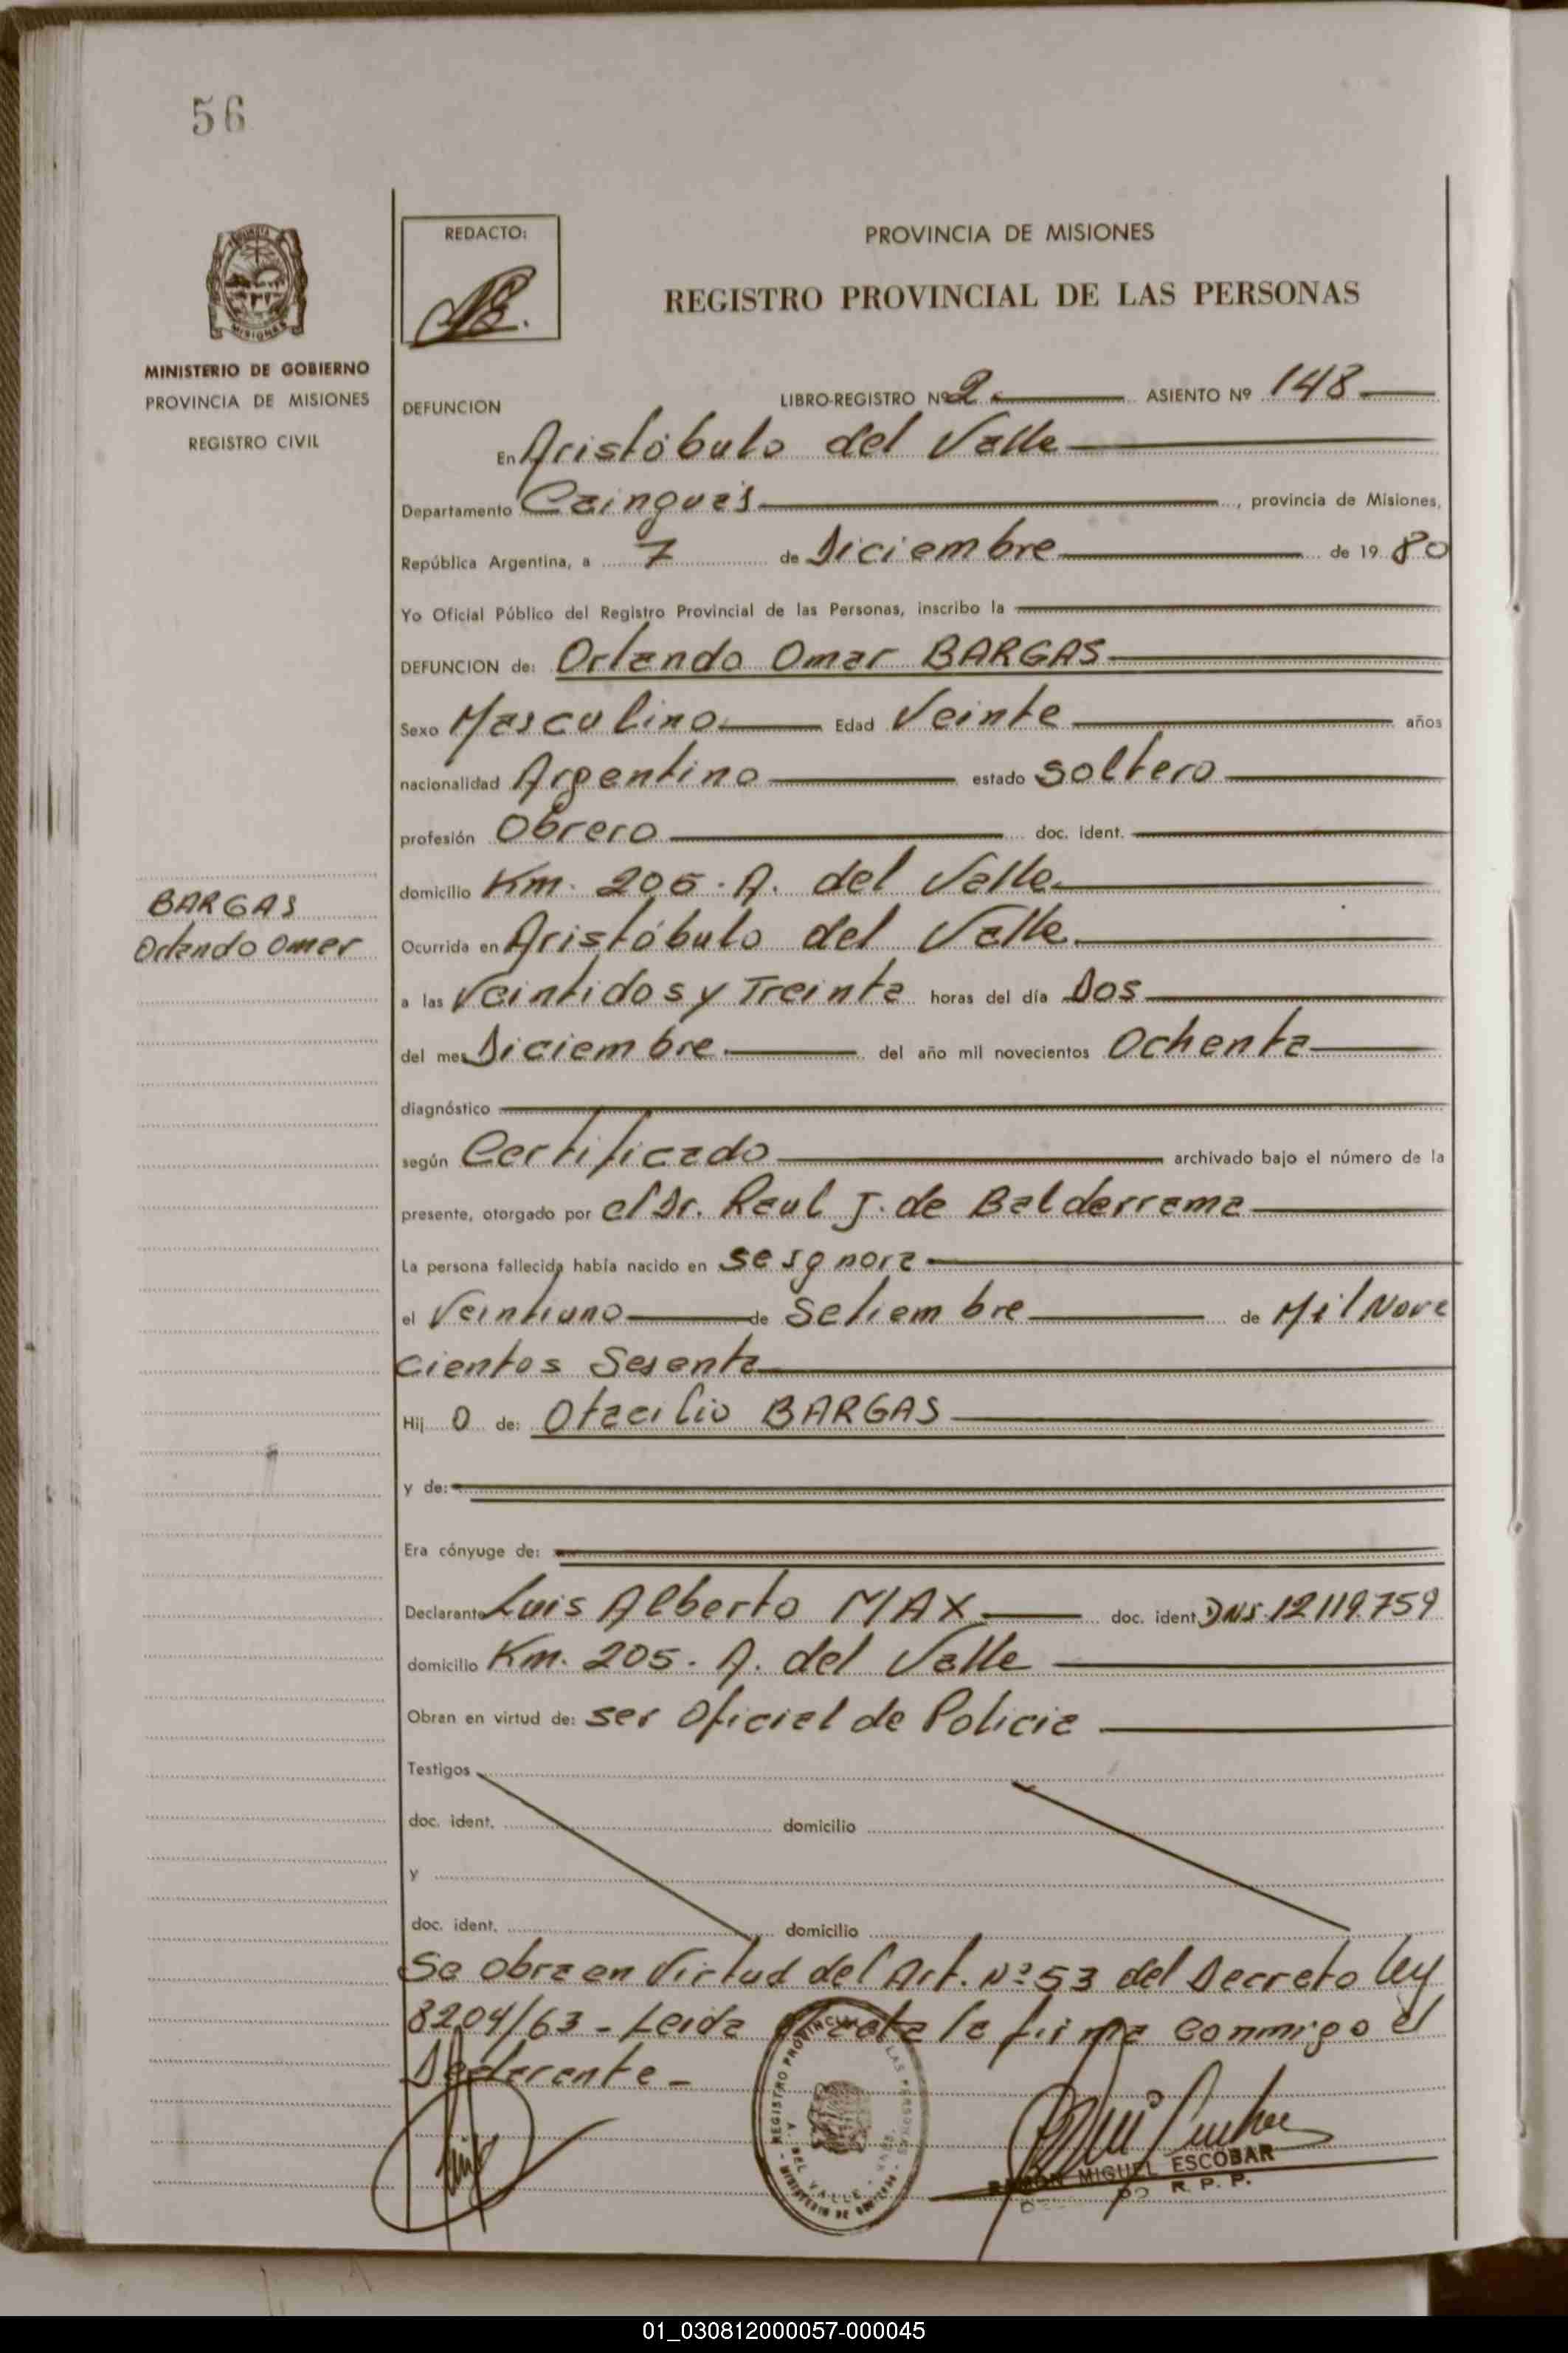 56
REDACTO:
PROVINCIA DE MISIONES
REGISTRO PROVINCIAL DE LAS PERSONAS
MISIONES
MINISTERIO DE GOBIERNO
PROVINCIA DE MISIONES
REGISTRO CIVIL
DEFUNCION LIBRO-REGISTRO Nº 2 ASIENTO Nº 148
En Aristóbulo del Valle
Departamento Cainguas, provincia de Misiones,
República Argentina, a 7 de Diciembre de 19 80
Yo Oficial Público del Registro Provincial de las Personas, inscribo la
DEFUNCION de: Orlando Omar BARGAS
Sexo Masculino Edad Veinte años
nacionalidad Argentino estado Soltero
profesión Obrero doc. ident.
domicilio Km. 205. A. del Valle
BARGAS
Orlando Omar
Ocurrida en Aristóbulo del Valle
a las Veintidos y Treinta horas del día Dos
del mes Diciembre del año mil novecientos Ochenta
diagnóstico
según Certificado archivado bajo el número de la
presente, otorgado por el Dr. Raul J. de Balderrama
La persona fallecida había nacido en se ignora
el Veintiuno de Setiembre de Mil Nove
cientos Sesenta
Hij o de: Otacilio BARGAS
y de:
Era cónyuge de:
Declarante Luis Alberto MAX doc. ident. DNI. 12.119.759
domicilio Km. 205. A. del Valle
Obran en virtud de: ser Oficial de Policia
Testigos
doc. ident. domicilio
y
doc. ident. domicilio
Se obra en Virtud del Art. Nº 53 del Decreto Ley
8204/63 - Leida el acta la firma conmigo el
Declarante -
REGISTRO PROVINCIAL DE LAS PERSONAS
A. DEL VALLE
MINISTERIO DE GOBIERNO
RAMON MIGUEL ESCOBAR
R. P. P.
01_030812000057-000045